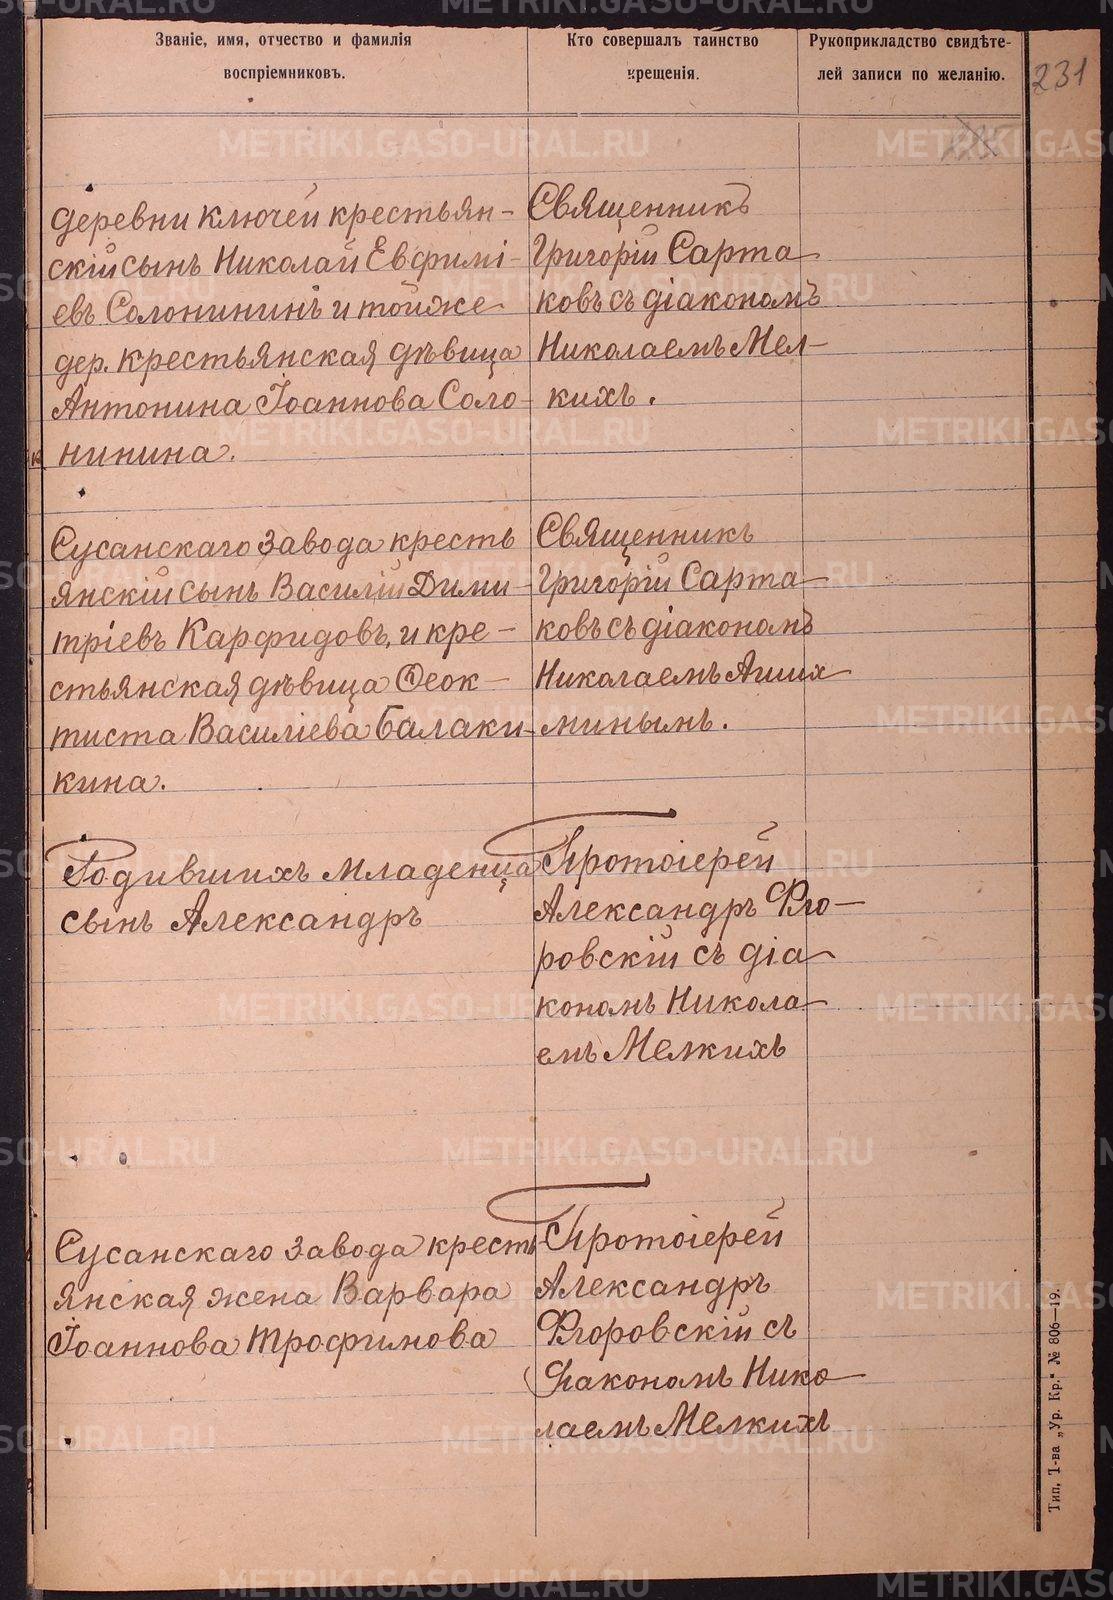 Званіе, имя, отчество и фамилія
воспріемниковъ.
Кто совершалъ таинство
крещенія.
Рукоприкладство свидѣте-
лей записи по желанію.
231
деревни Ключей крестьян-
скій сынъ Николай Евфимі-
евъ Солонининъ и тойже
дер. крестьянская дѣвица
Антонина Іоаннова Соло-
нинина.
Священникъ
Григорій Сарта-
ковъ съ діакономъ
Николаемъ Мел-
кихъ.
Сусанскаго завода кресть
янскій сынъ Василій Дими-
тріевъ Карфидовъ, и кре-
стьянская дѣвица Ѳеок-
тиста Василіева Балаки-
кина.
Священникъ
Григорій Сарта-
ковъ съ діакономъ
Николаемъ Аших
минымъ.
Родившихъ младенца
сынъ Александръ
Протоіерей
Александръ Фло-
ровскій съ діа
кономъ Никола-
емъ Мелкихъ
Сусанскаго завода кресть-
янская жена Варвара
Іоаннова Трофимова
Протоіерей
Александръ
Флоровскій съ
Діакономъ Нико-
лаемъ Мелкихъ
Тип. Т-ва „Ур. Кр." № 806—19.
METRIKI.GASO-URAL.RU